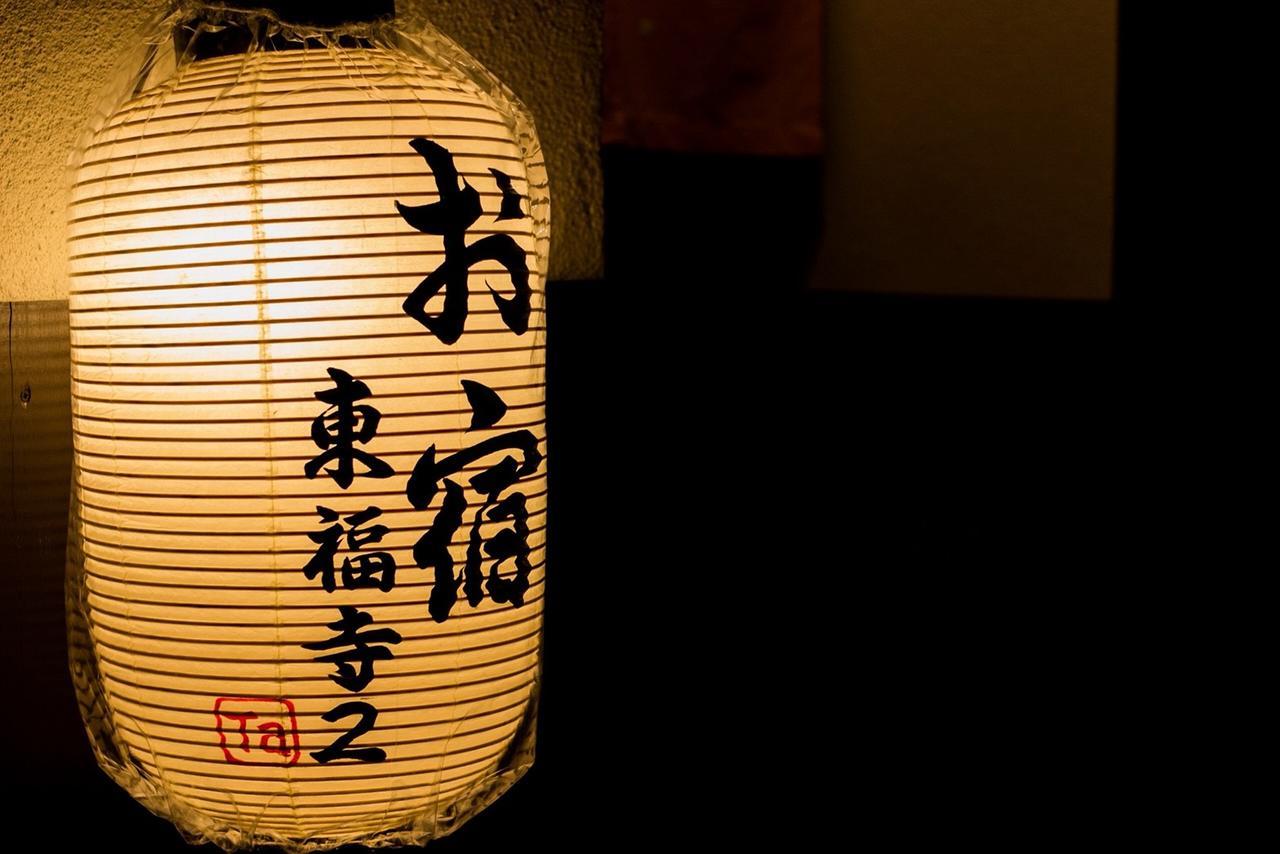 お宿
東福寺2
Ta